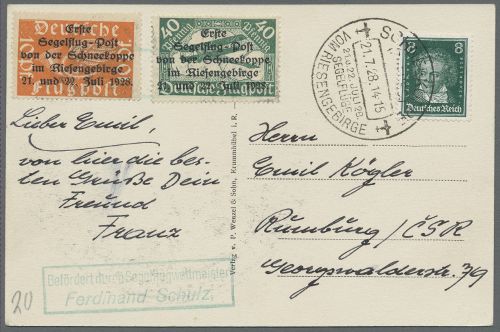 Deutsche
Flugpost
Erste
Segelflug-Post
von der Schneekoppe
im Riesengebirge
21. und 22. Juli 1928.
40 40
Erste
Segelflug-Post
von der Schneekoppe
im Riesengebirge
21. und 22. Juli 1928.
21.7.28.14-15
VOM RIESENGEBIRGE
8 8
Deutsches Reich
Lieber Emil,
von hier die bes-
ten Grüße Dein
Freund
Franz
Herrn
Emil Kögler
Rumburg / ČSR
Georgswalderstr. 79
Verlag v. P. Wenzel & Sohn, Krummhübel i. R.
Befördert durch Segelflugweltmeister
Ferdinand Schulz.
20